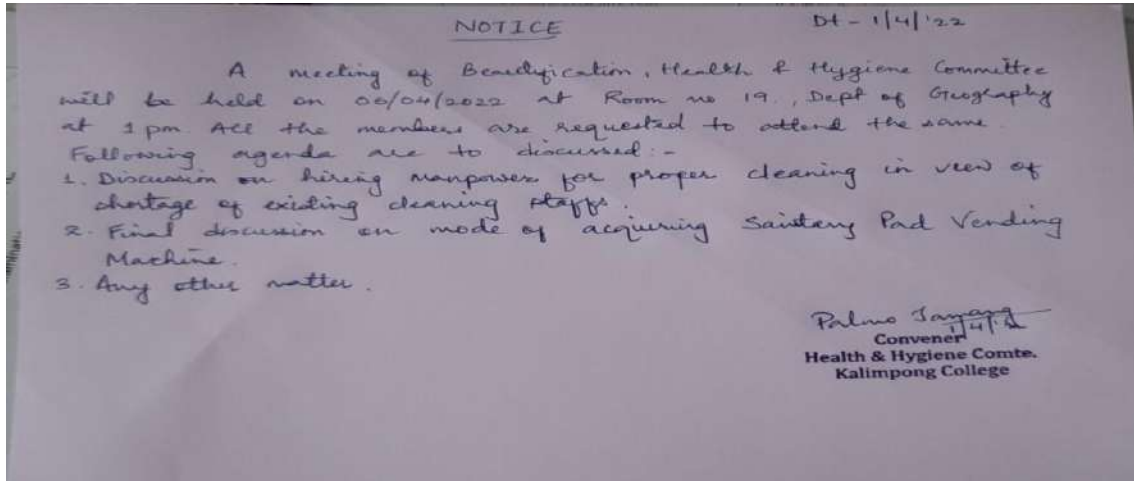 NOTICE Dt - 1/4/'22
A meeting of Beautification, Health & Hygiene Committee
will be held on 06/04/2022 at Room no 19., Dept of Geography
at 1 pm. All the members are requested to attend the same.
Following agenda are to discussed:-
1. Discussion on hiring manpower for proper cleaning in view of
shortage of existing cleaning staffs.
2. Final discussion on mode of acquiring Sanitary Pad Vending
Machine.
3. Any other matter.
Palmo
1/4/22
Convener
Health & Hygiene Comte.
Kalimpong College